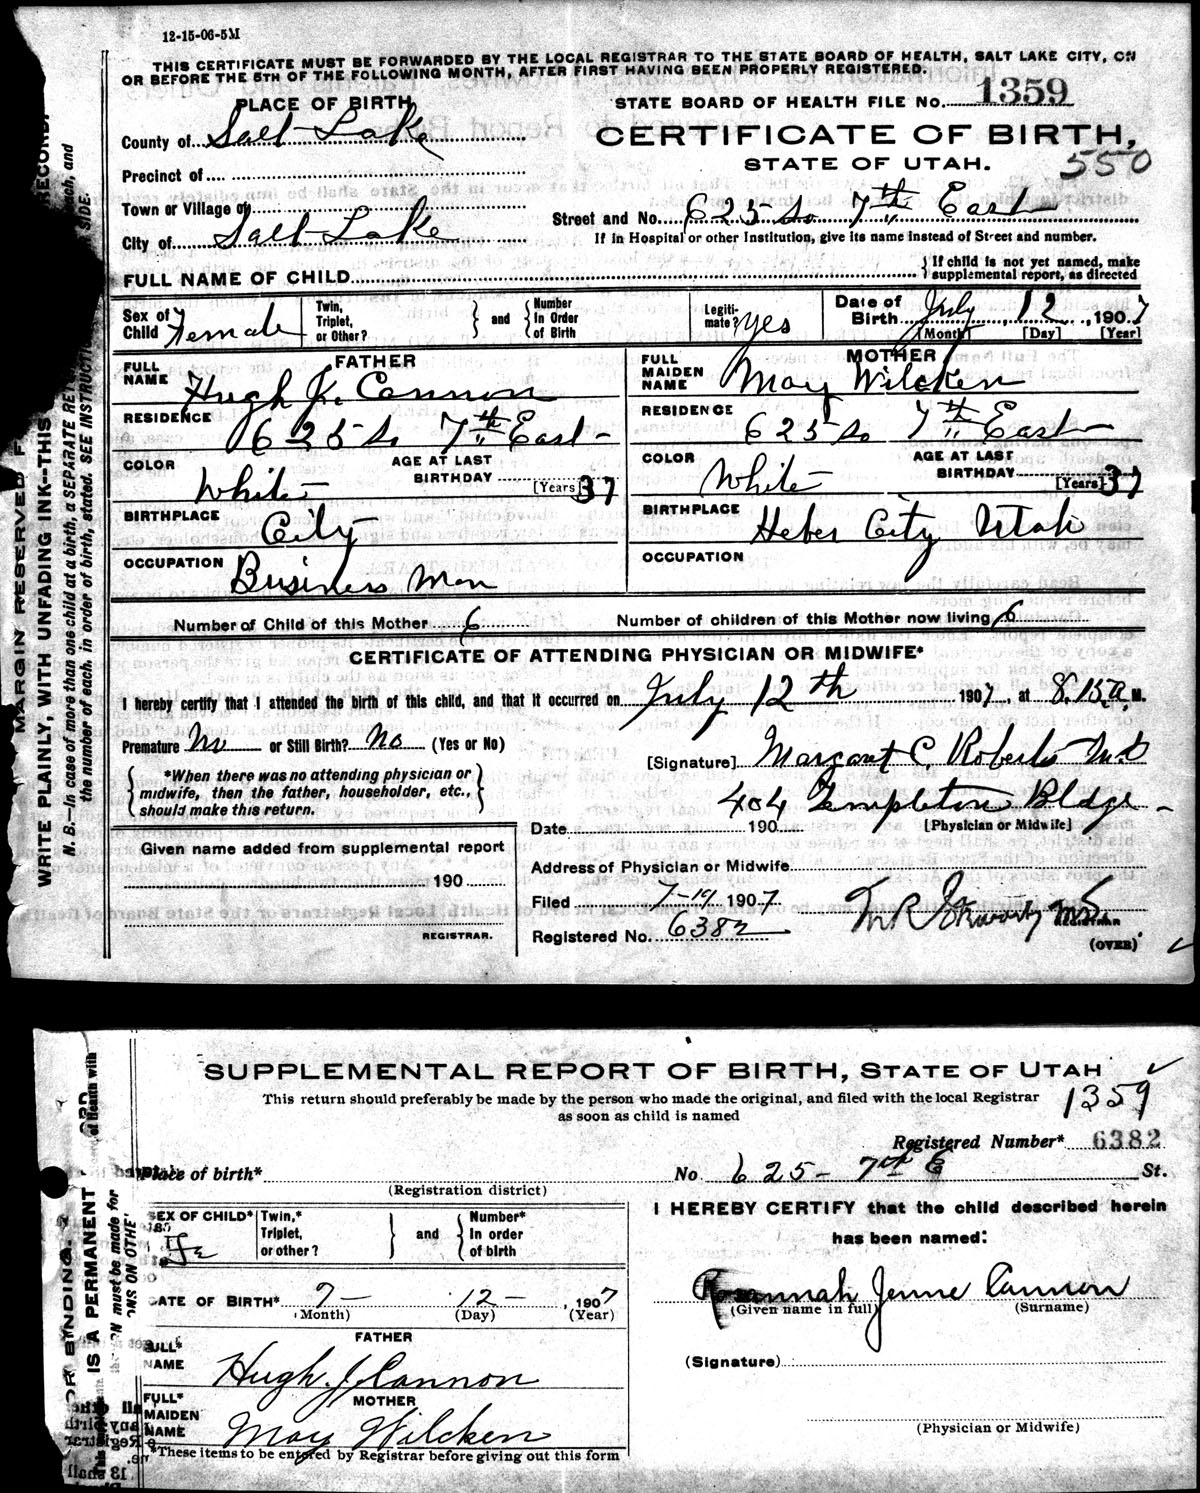 12-15-06-5M
THIS CERTIFICATE MUST BE FORWARDED BY THE LOCAL REGISTRAR TO THE STATE BOARD OF HEALTH, SALT LAKE CITY, ON
OR BEFORE THE 5TH OF THE FOLLOWING MONTH, AFTER FIRST HAVING BEEN PROPERLY REGISTERED.
PLACE OF BIRTH
County of Salt Lake
Precinct of
Town or Village of
City of Salt Lake
STATE BOARD OF HEALTH FILE No. 1359
CERTIFICATE OF BIRTH,
STATE OF UTAH.
550
Street and No. 625 So 7th East
If in Hospital or other Institution, give its name instead of Street and number.
FULL NAME OF CHILD
{If child is not yet named, make supplemental report, as directed
Sex of Child Female
Twin, Triplet, or Other? } and { Number In Order of Birth
Legitimate? yes
Date of Birth July 12, 1907
[Month] [Day] [Year]
FATHER
FULL NAME Hugh J. Cannon
RESIDENCE 625 So 7th East
COLOR White
AGE AT LAST BIRTHDAY 37 [Years]
BIRTHPLACE City
OCCUPATION Business Man
MOTHER
FULL MAIDEN NAME May Wilcken
RESIDENCE 625 So 7th East
COLOR White
AGE AT LAST BIRTHDAY 37 [Years]
BIRTHPLACE Heber City Utah
OCCUPATION
Number of Child of this Mother 6
Number of children of this Mother now living 6
CERTIFICATE OF ATTENDING PHYSICIAN OR MIDWIFE*
I hereby certify that I attended the birth of this child, and that it occurred on July 12th 1907, at 8.15 a, M.
Premature No or Still Birth? No (Yes or No)
{*When there was no attending physician or midwife, then the father, householder, etc., should make this return.}
[Signature] Margaret C. Roberts M.D
404 Templeton Bldge
Date 190
[Physician or Midwife]
Given name added from supplemental report
190
REGISTRAR.
Address of Physician or Midwife
Filed 7-19 1907
Registered No. 6382
REGISTRAR
(OVER)
MARGIN RESERVED F
WRITE PLAINLY, WITH UNFADING INK--THIS
RECORD.
N. B.—In case of more than one child at a birth, a SEPARATE RET
each, and
the number of each, in order of birth, stated. SEE INSTRUCTI
SIDE.
SUPPLEMENTAL REPORT OF BIRTH, STATE OF UTAH
This return should preferably be made by the person who made the original, and filed with the local Registrar
as soon as child is named
1359
Registered Number* 6382
Place of birth*
(Registration district)
No 625- 7th E St.
SEX OF CHILD* Fe
Twin,* Triplet, or other? } and { Number* In order of birth
DATE OF BIRTH* 7- 12- 1907
(Month) (Day) (Year)
FATHER
FULL* NAME Hugh J Cannon
MOTHER
FULL* MAIDEN NAME May Wilcken
*These items to be entered by Registrar before giving out this form
I HEREBY CERTIFY that the child described herein
has been named:
Jenne Cannon
(Given name in full) (Surname)
(Signature)
(Physician or Midwife)
OR BINDING.
IS A PERMANENT
must be made for
ONS ON OTHE